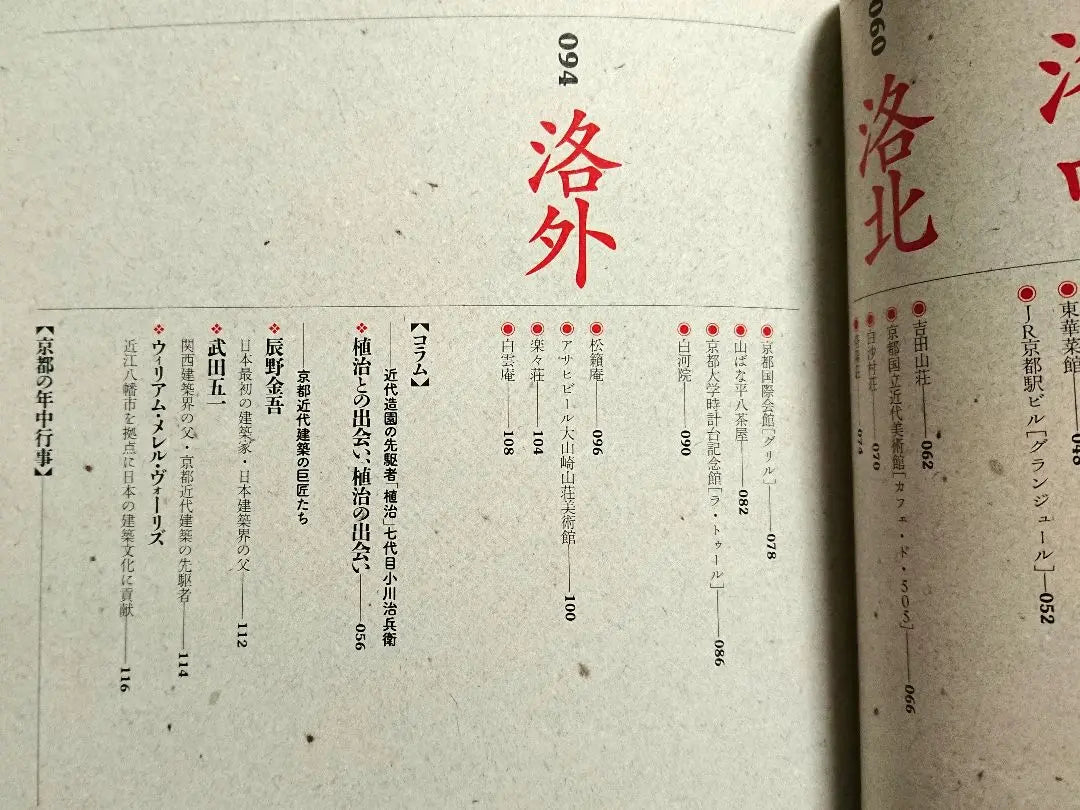 東華菜館
048
JR京都駅ビル[グランジュール]—052
060
洛北
吉田山荘——062
京都国立近代美術館[カフェ・ド・505]——066
白沙村荘——070
074
京都国際会館[グリル]——078
山ばな平八茶屋——082
京都大学時計台記念館[ラ・トゥール]——086
白河院——090
094
洛外
松籟庵——096
アサヒビール大山崎山荘美術館——100
楽々荘——104
白雲庵——108
【コラム】
——近代造園の先駆者「植治」七代目小川治兵衛
植治との出会い、植治の出会い——056
——京都近代建築の巨匠たち
辰野金吾
日本最初の建築家・日本建築界の父——112
武田五一
関西建築界の父・京都近代建築の先駆者——114
ウィリアム・メレル・ヴォーリズ
近江八幡市を拠点に日本の建築文化に貢献——116
【京都の年中行事】——